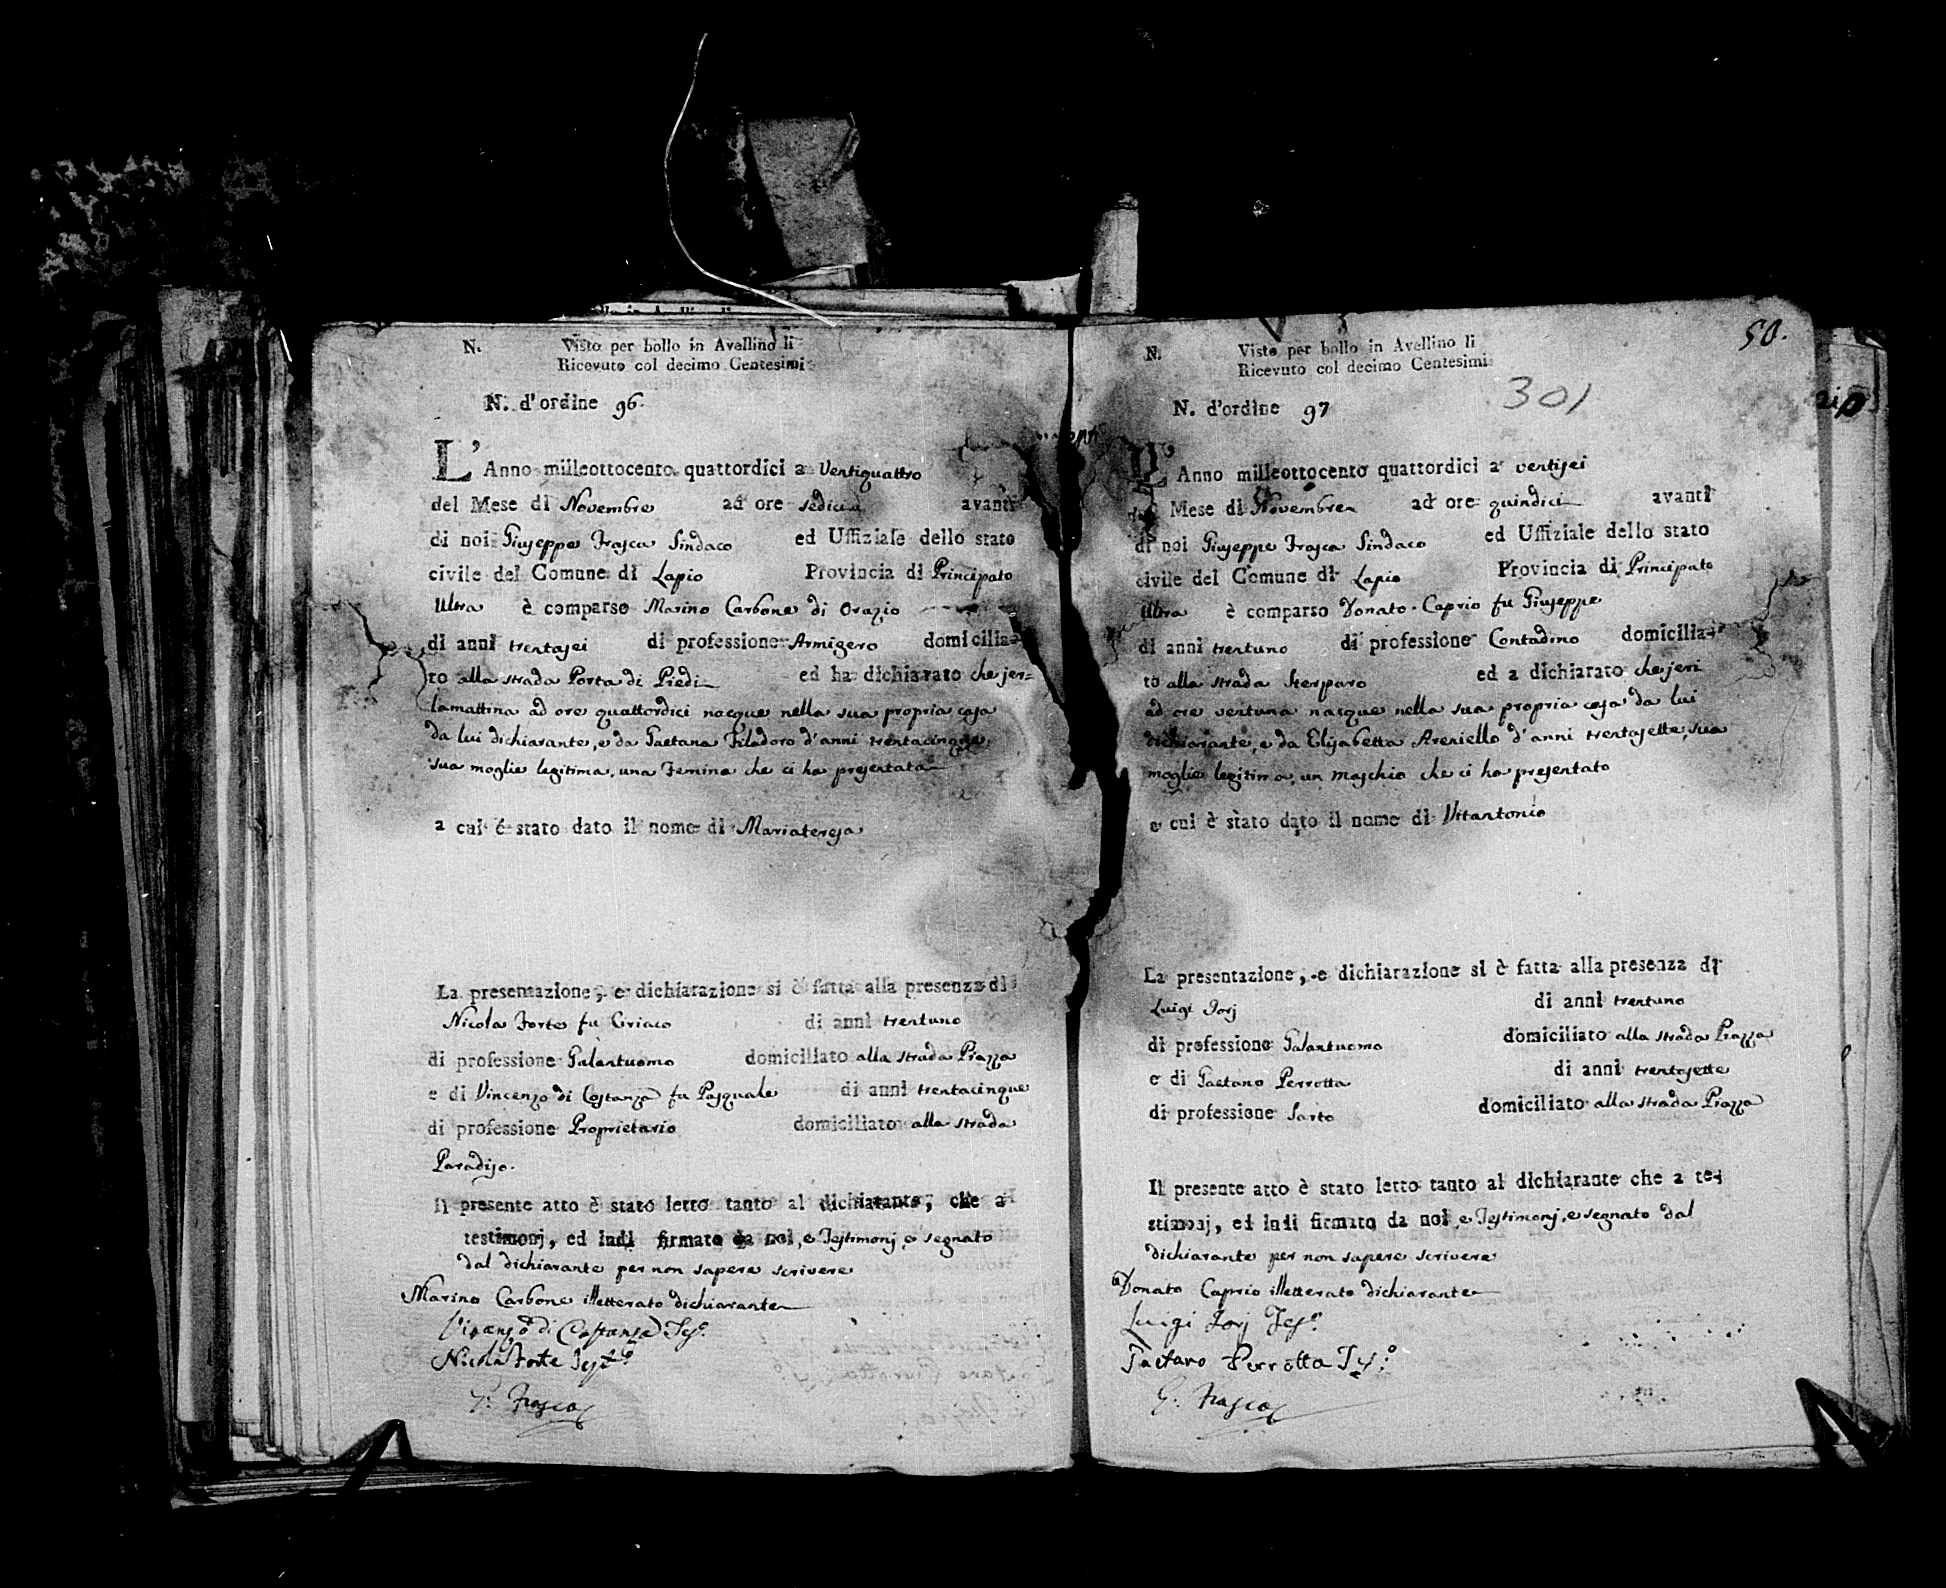 N. Visto per bollo in Avellino li
Ricevuto col decimo Centesimi
N. d'ordine 96.
L'Anno milleottocento quattordici a Ventiquattro
del Mese di Novembre ad ore sedici avanti
di noi Giuseppe Frasca Sindaco ed Uffiziale dello stato
civile del Comune di Lapio Provincia di Principato
Ultra è comparso Marino Carbone di Orazio
di anni trentasei di professione Armigero domicilia-
to alla strada Porta di Piedi ed ha dichiarato che jer=
lamattina ad ore quattordici nacque nella sua propria casa
da lui dichiarante, e da Gaetana Filadoro d'anni trentacinque,
sua moglie legitima, una Femina che ci ha presentata
a cui è stato dato il nome di Mariateresa
La presentazione, e dichiarazione si è fatta alla presenza di
Nicola Forte fu Ciriaco di anni trentuno
di professione Galantuomo domiciliato alla strada Piazza
e di Vincenzo di Costanza fu Pasquale di anni trentacinque
di professione Proprietario domiciliato alla strada
Paradiso.
Il presente atto è stato letto tanto al dichiarante, che a
testimonj, ed indi firmato da noi, e Testimonj, e segnato
dal dichiarante per non sapere scrivere
Marino Carbone illetterato dichiarante
Vicenzo di Costanza Tes.º
Nicola Forte Test.º
G. Frasca
50.
N. Visto per bollo in Avellino li
Ricevuto col decimo Centesimi
301
N. d'ordine 97
L'Anno milleottocento quattordici a ventisei
Mese di Novembre ad ore quindici avanti
di noi Giuseppe Frasca Sindaco ed Uffiziale dello stato
civile del Comune di Lapio Provincia di Principato
Ultra è comparso Donato Caprio fu Giuseppe
di anni trentuno di professione Contadino domicilia-
to alla strada Sterparo ed a dichiarato che jeri
ad ore ventuna nacque nella sua propria casa da lui
dichiarante, e da Elisabetta Areniello d'anni trentasette, sua
moglie legitima, un maschio che ci ha presentato
a cui è stato dato il nome di Vitantonio
La presentazione, e dichiarazione si è fatta alla presenza di
Luigi Jorj di anni trentuno
di professione Galantuomo domiciliato alla strada Piazza
e di Gaetano Perrotta di anni trentasette
di professione Sarto domiciliato alla strada Piazza
Il presente atto è stato letto tanto al dichiarante che a te-
stimonj, ed indi firmato da noi, e Testimonj, e segnato dal
dichiarante per non sapere scrivere
Donato Caprio illetterato dichiarante
Luigi Jorj Tes.º
Gaetano Perrotta Tes.º
G. Frasca